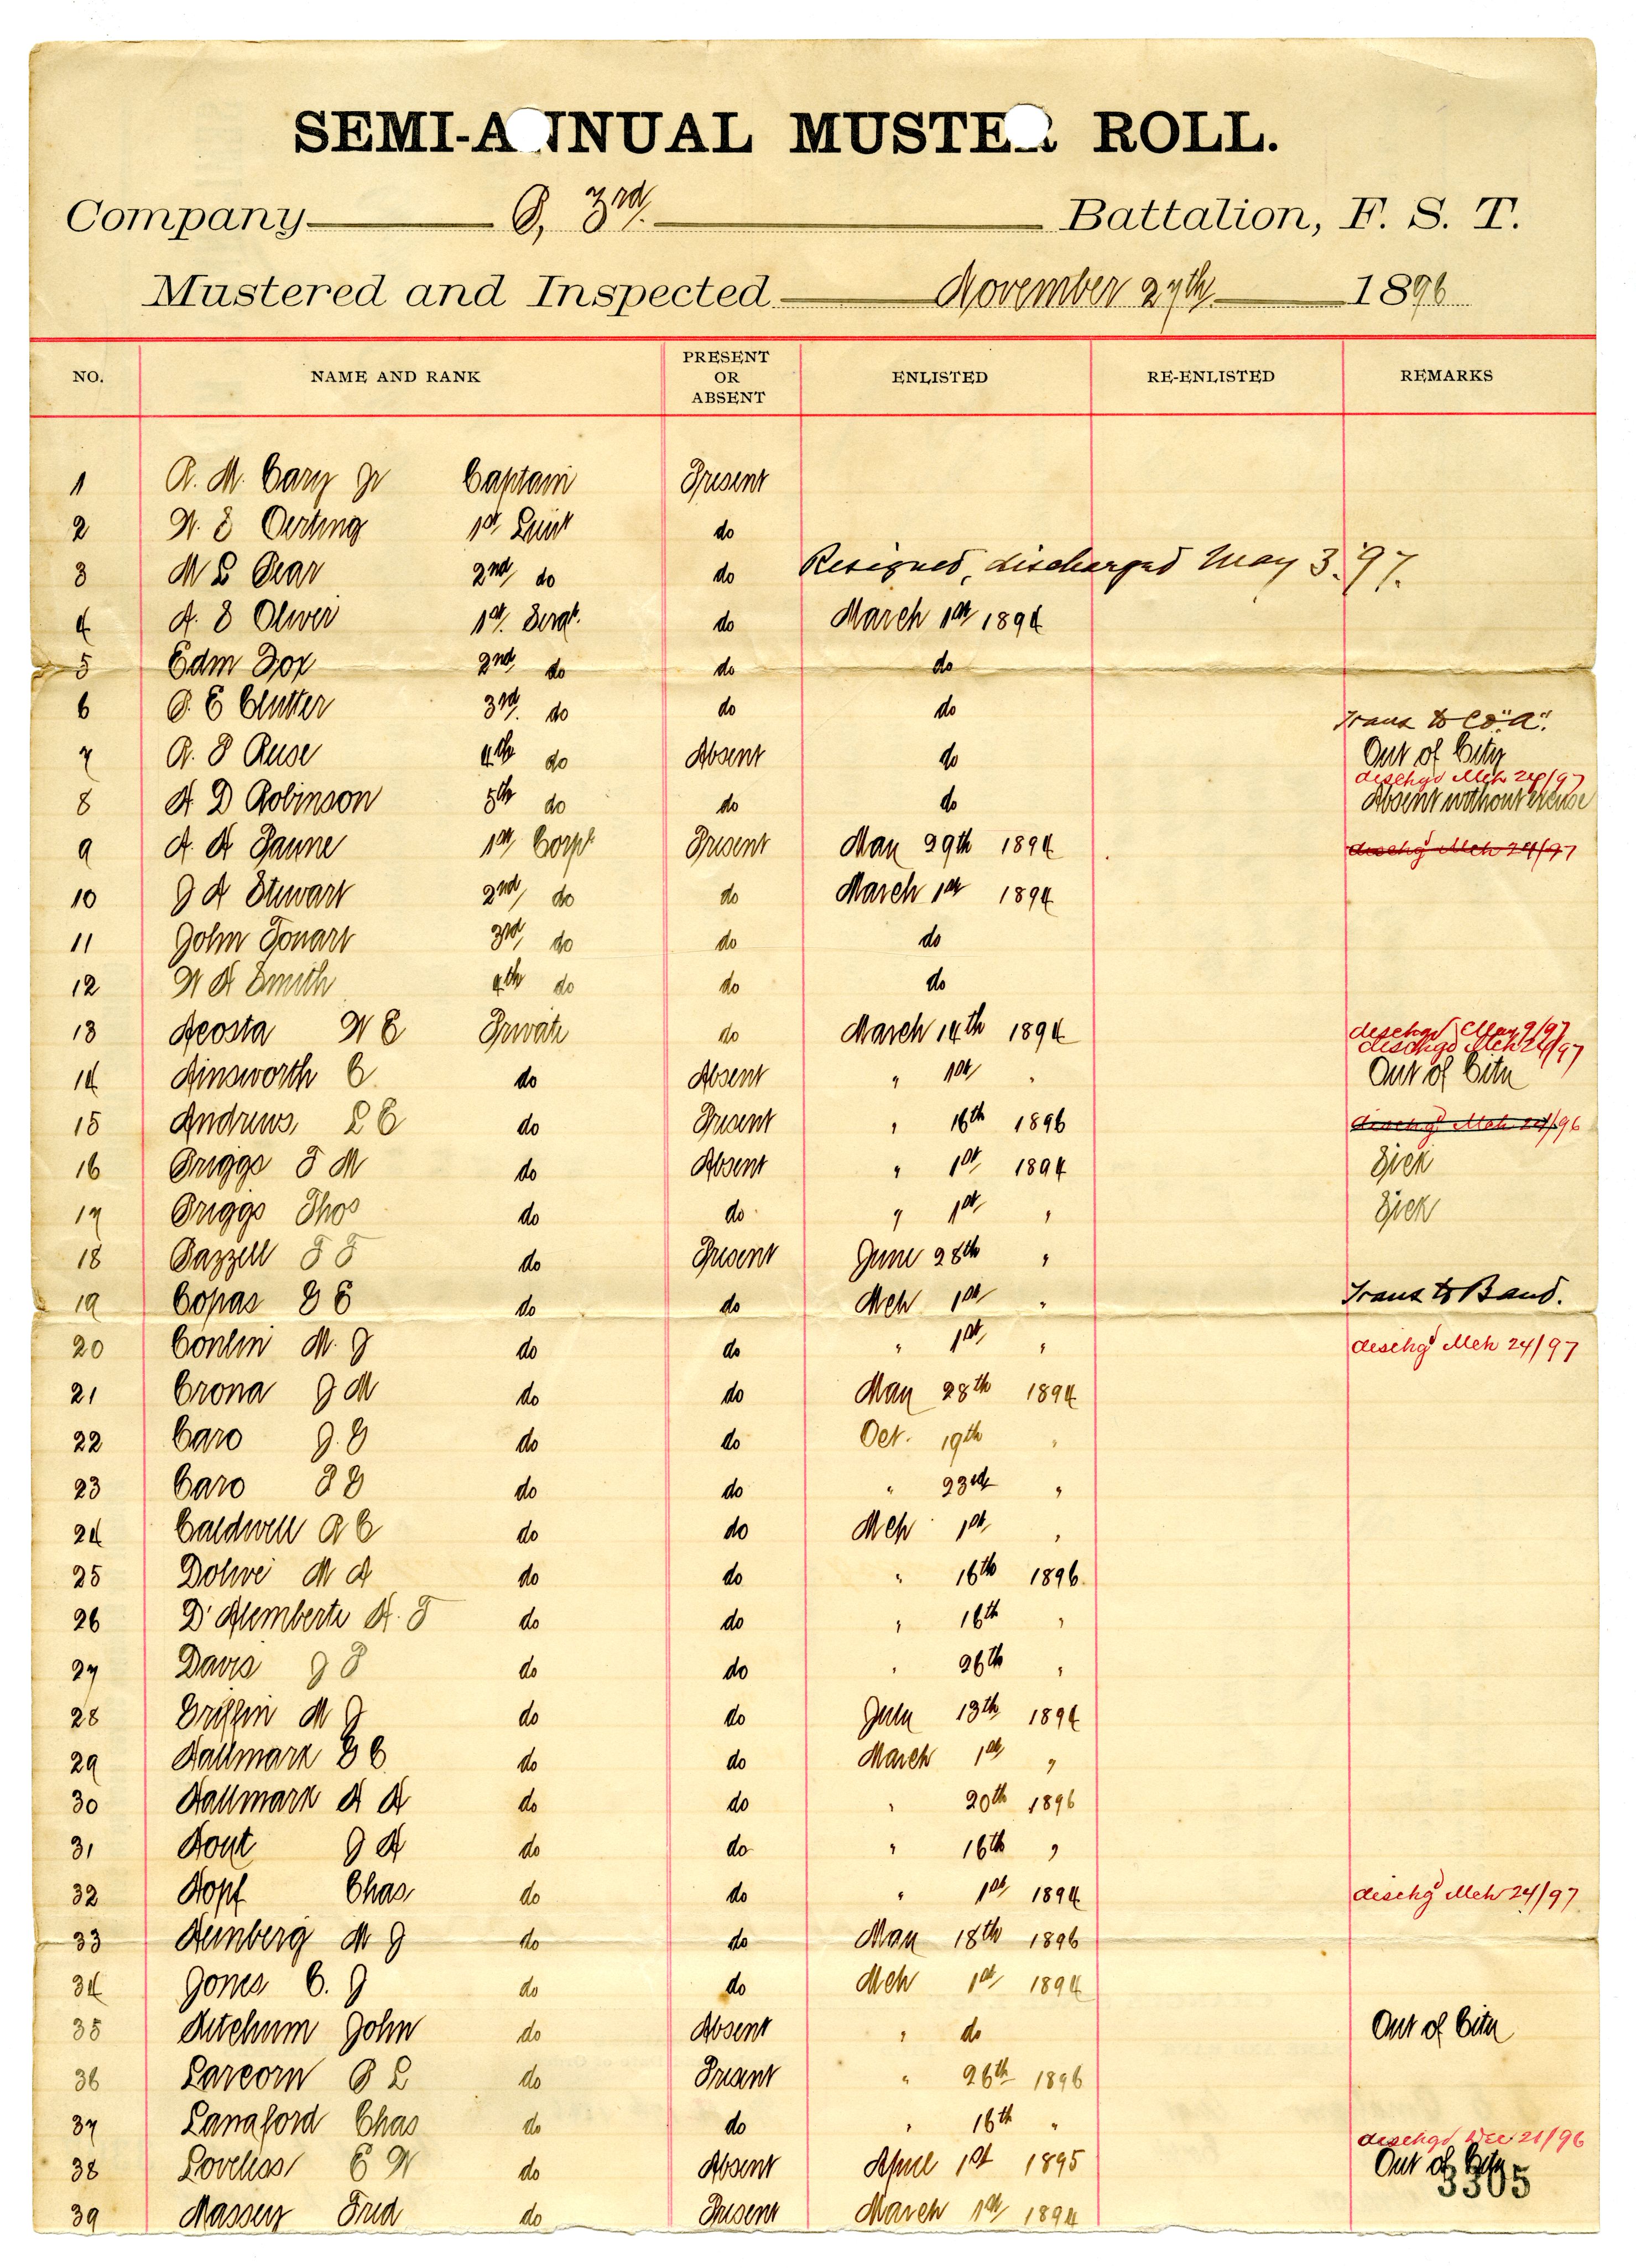 SEMI-ANNUAL MUSTER ROLL.
Company B, 3rd. Battalion, F. S. T.
Mustered and Inspected November 27th 1896
NO. NAME AND RANK PRESENT OR ABSENT ENLISTED RE-ENLISTED REMARKS
1 R. M. Cary Jr Captain Present
2 W. E Oerting 1st Lieut do
3 M L Dear 2nd do do Resigned, discharged May 3. '97.
4 A. E Oliver 1st. Sergt. do March 1st 1894
5 Edm Fox 2nd do do do
6 B. C Clutter 3rd. do do do Trans to Co "A".
7 R. F Ruse 4th do Absent do Out of City
8 H D Robinson 5th do do do dischgd Mch 24/97 Absent without excuse
9 A. H 1st Corpl Present May 29th 1894 dischgd Mch 24/97
10 J A Stewart 2nd do do March 1st 1894
11 John Touart 3rd do do do
12 W H Smith 4th do do do
13 Acosta W C Private do March 14th 1894 dischgd May 9/97
14 Ainsworth C. do Absent " 1st " dischgd Mch 24/97 Out of City
15 Andrews, L C do Present " 16th 1896 dischgd Mch 24/96
16 Briggs F M do Absent " 1st 1894 Sick
17 Briggs Thos do do " 1st " Sick
18 Bazzell F F do Present June 28th "
19 Copas E C do do Mch 1st " Trans to Band.
20 Conlin M. J do do " 1st " dischgd Mch 24/97
21 Crona J M do do May 28th 1894
22 Caro J. B do do Oct. 19th "
23 Caro E B do do " 23rd "
24 Caldwell R C do do Mch 1st "
25 Dolive M A do do " 16th 1896
26 D'Alemberte H. F do do " 16th "
27 Davis J F do do " 26th "
28 Griffin M J do do July 13th 1894
29 Hallmark E C do do March 1st "
30 Hallmark A H do do " 20th 1896
31 J A do do " 16th "
32 Hopf Chas, do do " 1st 1894 dischgd Mch 24/97
33 Heinberg M J do do May 18th 1896
34 Jones C. J do do Mch 1st 1894
35 Ketchum John do Absent " do Out of City
36 Larcom B L do Present " 26th 1896
37 Langford Chas do do " 16th "
38 Loveless C W do Absent April 1st 1895 dischgd Dec 21/96 Out of City
39 Massey Fred do Present March 1st 1894
3305